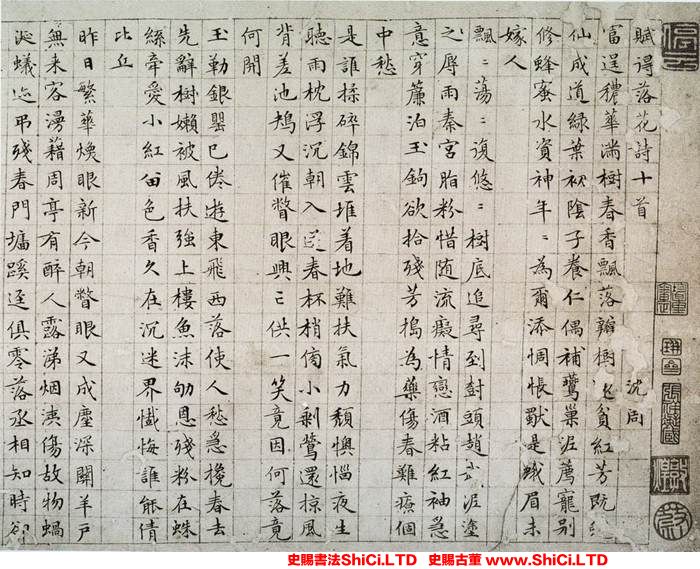 賦得落花詩十首
沈周
富逞穠華滿樹春香飄落瓣樹還貧紅芳既
仙成道綠葉初陰子養仁偶補鶯巢泥薦寵別
修蜂蜜水資神年〻為爾添惆悵獸是蛾眉未
嫁人
飄〻蕩〻復悠〻樹底追尋到樹頭趙武泥塗
之辱雨秦宮脂粉惜随流癡情戀酒粘紅袖急
意穿簾泊玉鉤欲拾殘芳搗為藥傷春難療個
中愁
是誰揉碎錦雲堆着地難扶氣力頹懊惱夜生
聽雨枕浮沉朝入送春杯梢傍小剥鶯還掠風
背差池鴆又催瞥眼興亡供一笑竟因何落竟
何開
玉勒銀罌已倦遊東飛西落使人愁急攙春去
先辭樹嬾被風扶強上樓魚沫劬恩殘粉在蛛
絲牽愛小紅留色香久在沉迷界懺悔誰能倩
比丘
昨日繁華煥眼新今朝瞥眼又成塵深關羊戶
無来客漫藉周亭有醉人露涕烟洟傷故物蝸
涎蟻迹弔殘春門墻蹊逕俱零落丞相知時卻
史賜書法ShiCi.LTD 史賜古董 www.ShiCi.LTD